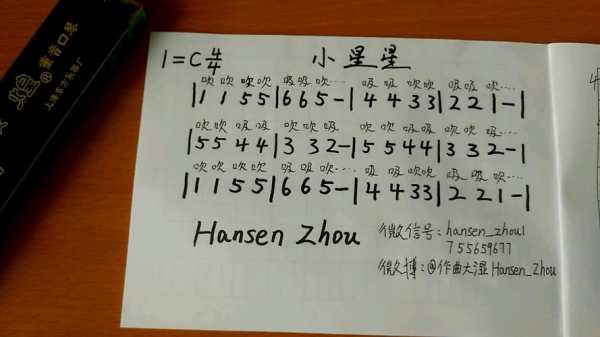 煌牌重音口琴
上海东方乐器厂
1=C 4/4 小星星
吹吹吹吹 吸吸吹… 吸吸吹吹 吸吸吹…
|1 1 5 5|6 6 5-|4 4 3 3|2 2 1-|
吹吹吸吸 吹吹吸… 吹吹吸吸 吹吹吸…
|5 5 4 4|3 3 2-|5 5 4 4|3 3 2-|
吹吹吹吹 吸吸吹… 吸吸吹吹 吸吸吹…
|1 1 5 5|6 6 5-|4 4 3 3|2 2 1-|
Hansen Zhou
微信号:hansen_zhou1
755659677
微博:@作曲大湿Hansen_Zhou
4